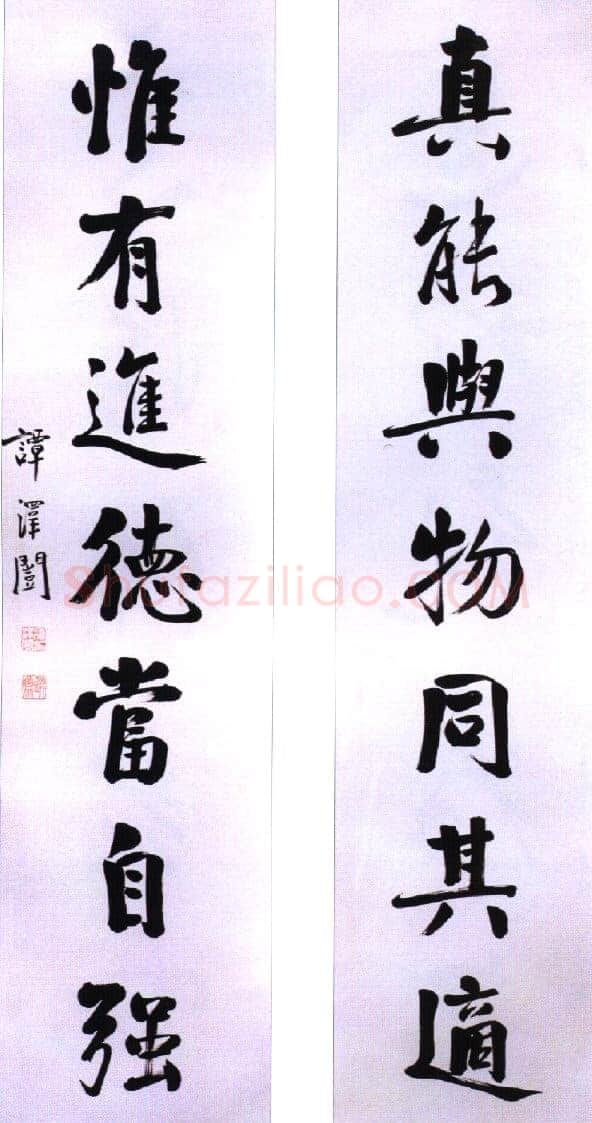 真能與物同其適
惟有進德當自强
譚澤闓
Shufaziliao.COM